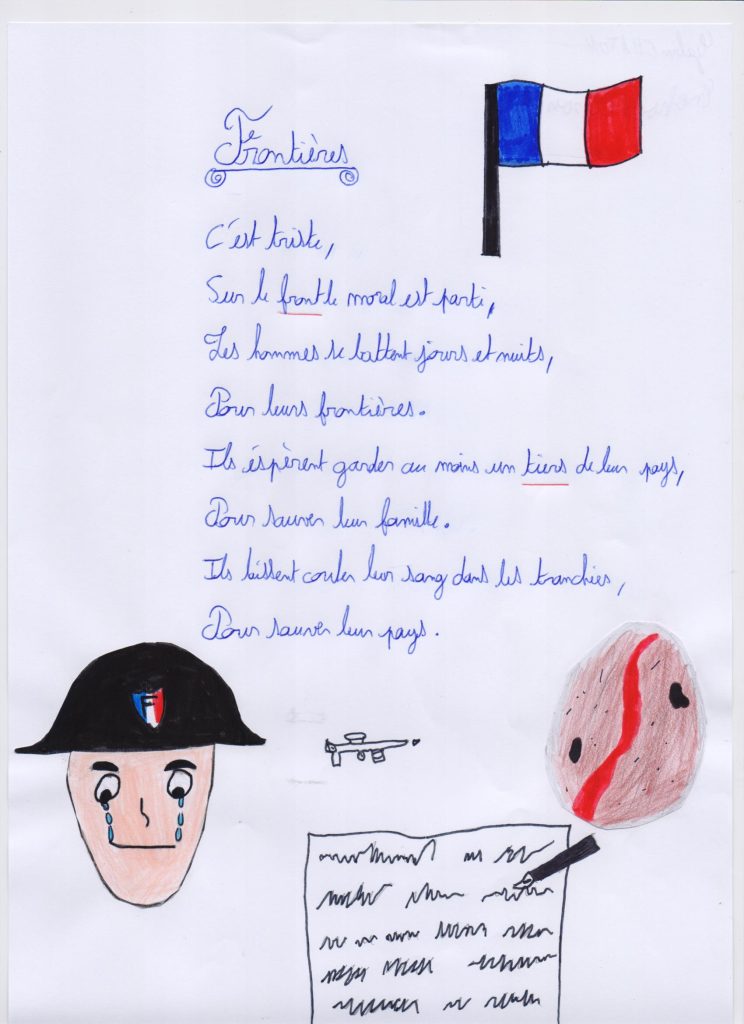 Frontières
C'est triste,
Sur le front le moral est parti,
Les hommes se battent jours et nuits,
Pour leurs frontières.
Ils éspèrent garder au moins un tiers de leur pays,
Pour sauver leur famille.
Ils laissent couler leur sang dans les tranchées,
Pour sauver leur pays.
F